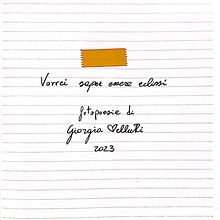 Vorrei saper essere eclissi
fotopoesie di
Giorgia Vellutti
2023